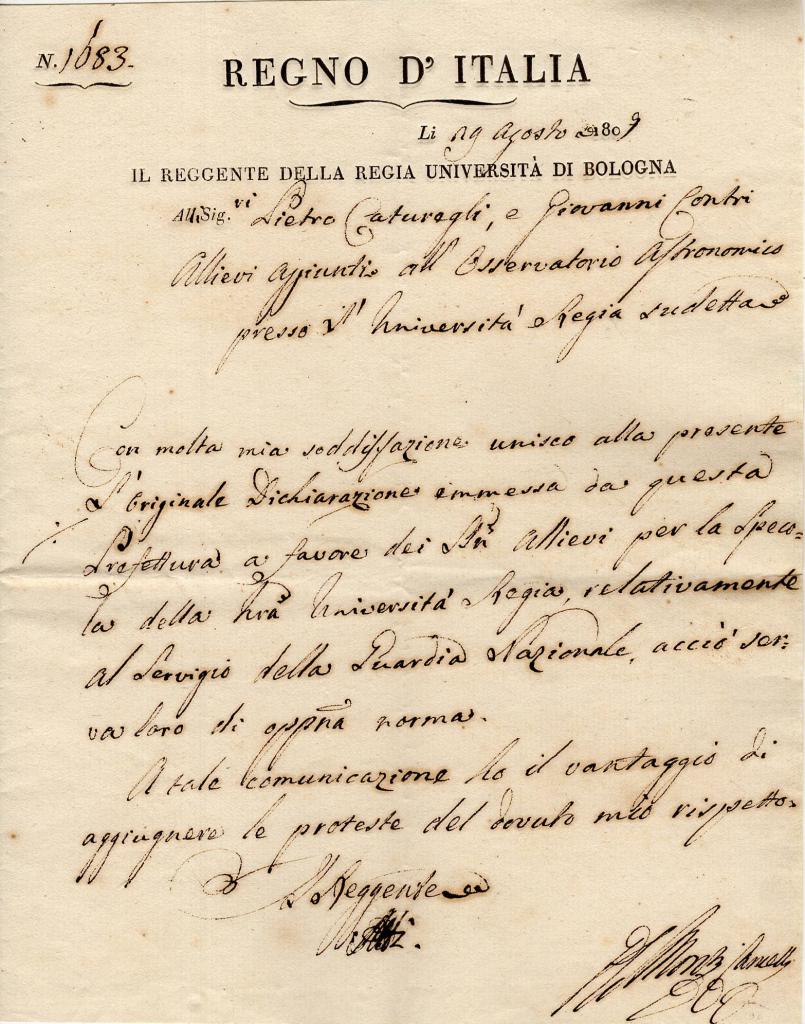 N. 1683.
REGNO D' ITALIA
Li 29 Agosto 1809
IL REGGENTE DELLA REGIA UNIVERSITÀ DI BOLOGNA
Alli Sig.ri Pietro Caturegli, e Giovanni Contri
Allievi aggiunti all' Osservatorio Astronomico
presso l' Università Regia sudetta
Con molta mia soddisfazione unisco alla presente
l'originale Dichiarazione emmessa da questa
Prefettura a favore dei Allievi per la Speco=
la della nrã Università Regia, relativamente
al Servigio della Guardia Nazionale, acciò ser=
va loro di oppña norma.
A tale comunicazione ho il vantaggio di
aggiugnere le proteste del dovuto mio rispetto.
Il Reggente